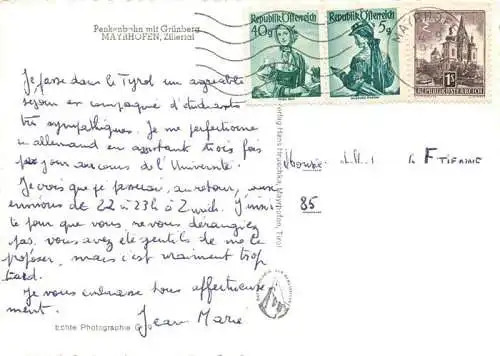 Penkenbahn mit Grünberg
MAYRHOFEN, Zillertal
Republik Österreich
40g
Republik Österreich
5g
1S
REPUBLIK ÖSTERREICH
Je passe dans le Tyrol un agréable
séjour en compagnie d'étudiants
très sympathiques. Je me perfectionne
en allemand en assistant trois fois
par jour aux cours de l'Université.
Je crois que je passerai, au retour, aux
environs de 22 à 23h à Zurich. J'insis
te pour que vous ne vous dérangiez
pas, vous avez été gentils de me le
proposer, mais c'est vraiment trop
tard.
Je vous embrasse tous affectueuse
ment.
Jean Marie
Echte Photographie
Verlag Hans Hruschka, Mayrhofen, Tirol
ETIENNE
85